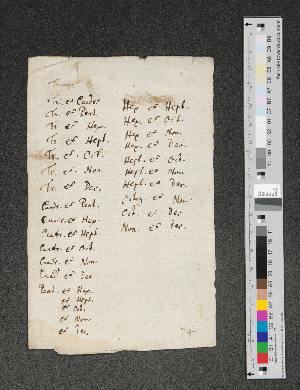 Tr. et Quadr.
Tr. et Pent.
Tr. et Hex.
Tr. et Hept.
Tr. et Oct.
Tr. et Non.
Tr. et Dec.
Quadr. et Pent.
Quadr. et Hex.
Quadr. et Hept.
Quadr. et Oct.
Quadr. et Non.
Quadr. et Dec.
Pent. et Hex.
et Hept.
et Oct.
et Non.
et Dec.
Hex. et Hept.
Hex. et Oct.
Hex. et Non.
Hex. et Dec.
Hept. et Oct.
Hept. et Non.
Hept. et Dec.
et Non.
Oct. et Dec.
Non. et Dec.